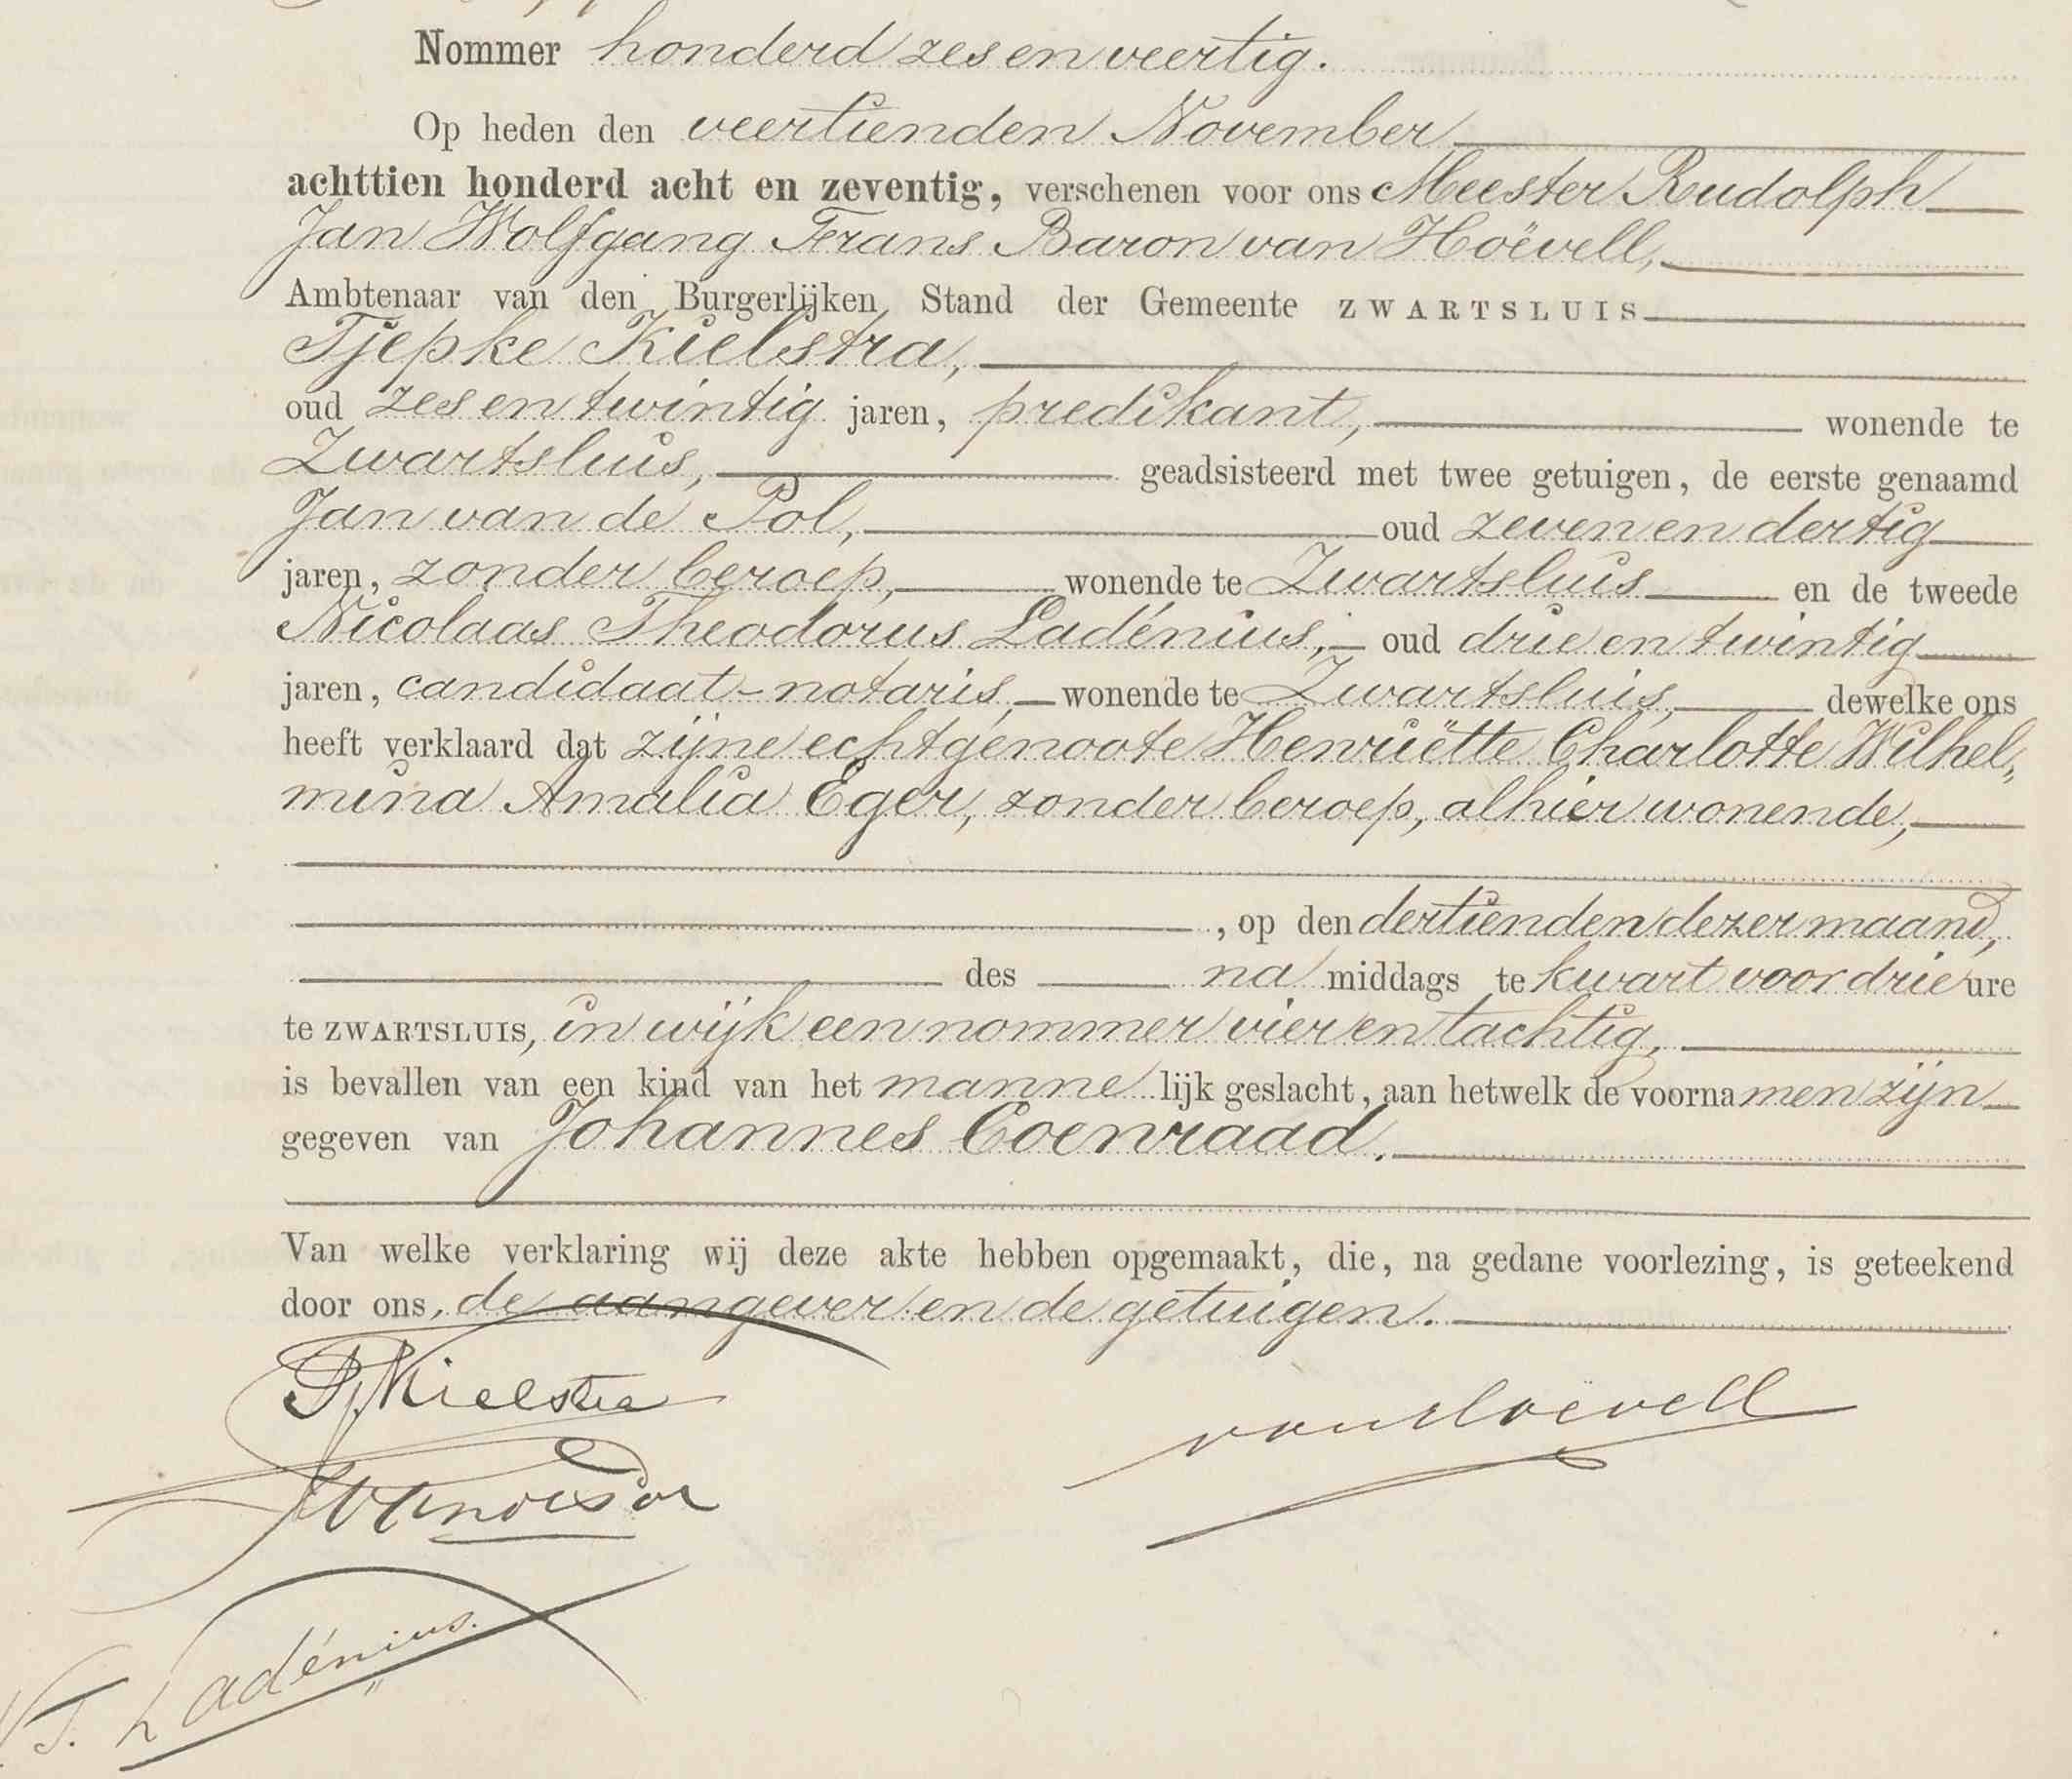 Nommer honderd zes en veertig.
Op heden den veertienden November
achttien honderd acht en zeventig, verschenen voor ons Meester Rudolph
Jan Wolfgang Frans Baron van Hoëvell,
Ambtenaar van den Burgerlijken Stand der Gemeente ZWARTSLUIS
Tjepke Kielstra,
oud zes en twintig jaren, predikant, wonende te
Zwartsluis, geadsisteerd met twee getuigen, de eerste genaamd
Jan van de Pol, oud zeven en dertig
jaren, zonder beroep, wonende te Zwartsluis en de tweede
Nicolaas Theodorus Ladénius, oud drie en twintig
jaren, candidaat-notaris, wonende te Zwartsluis, dewelke ons
heeft verklaard dat zijne echtgenoote Henriëtte Charlotte Wilhel„
mina Amalia Eger, zonder beroep, alhier wonende,
, op den dertienden dezer maand,
des na middags te kwart voor drie ure
te ZWARTSLUIS, in wijk een nommer vier en tachtig,
is bevallen van een kind van het manne lijk geslacht, aan hetwelk de voornamen zijn
gegeven van Johannes Coenraad.
Van welke verklaring wij deze akte hebben opgemaakt, die, na gedane voorlezing, is geteekend
door ons, de aangever en de getuigen.
Tj. Kielstra
van Hoëvell
J van de Pol
N.T. Ladénius.